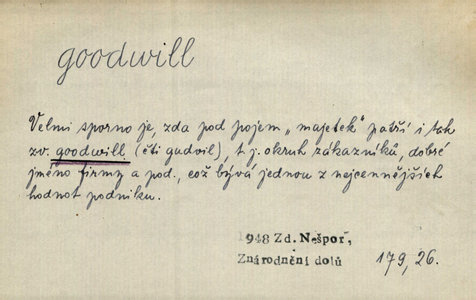 goodwill
Velmi sporno je, zda pod pojem „majetek" patří i tak
zv. goodwill (čti gudvil), t.j. okruh zákazníků, dobré
jméno firmy a pod., což bývá jednou z nejcennějších
hodnot podniku.
1948 Zd. Nešpor,
Znárodnění dolů
179, 26.